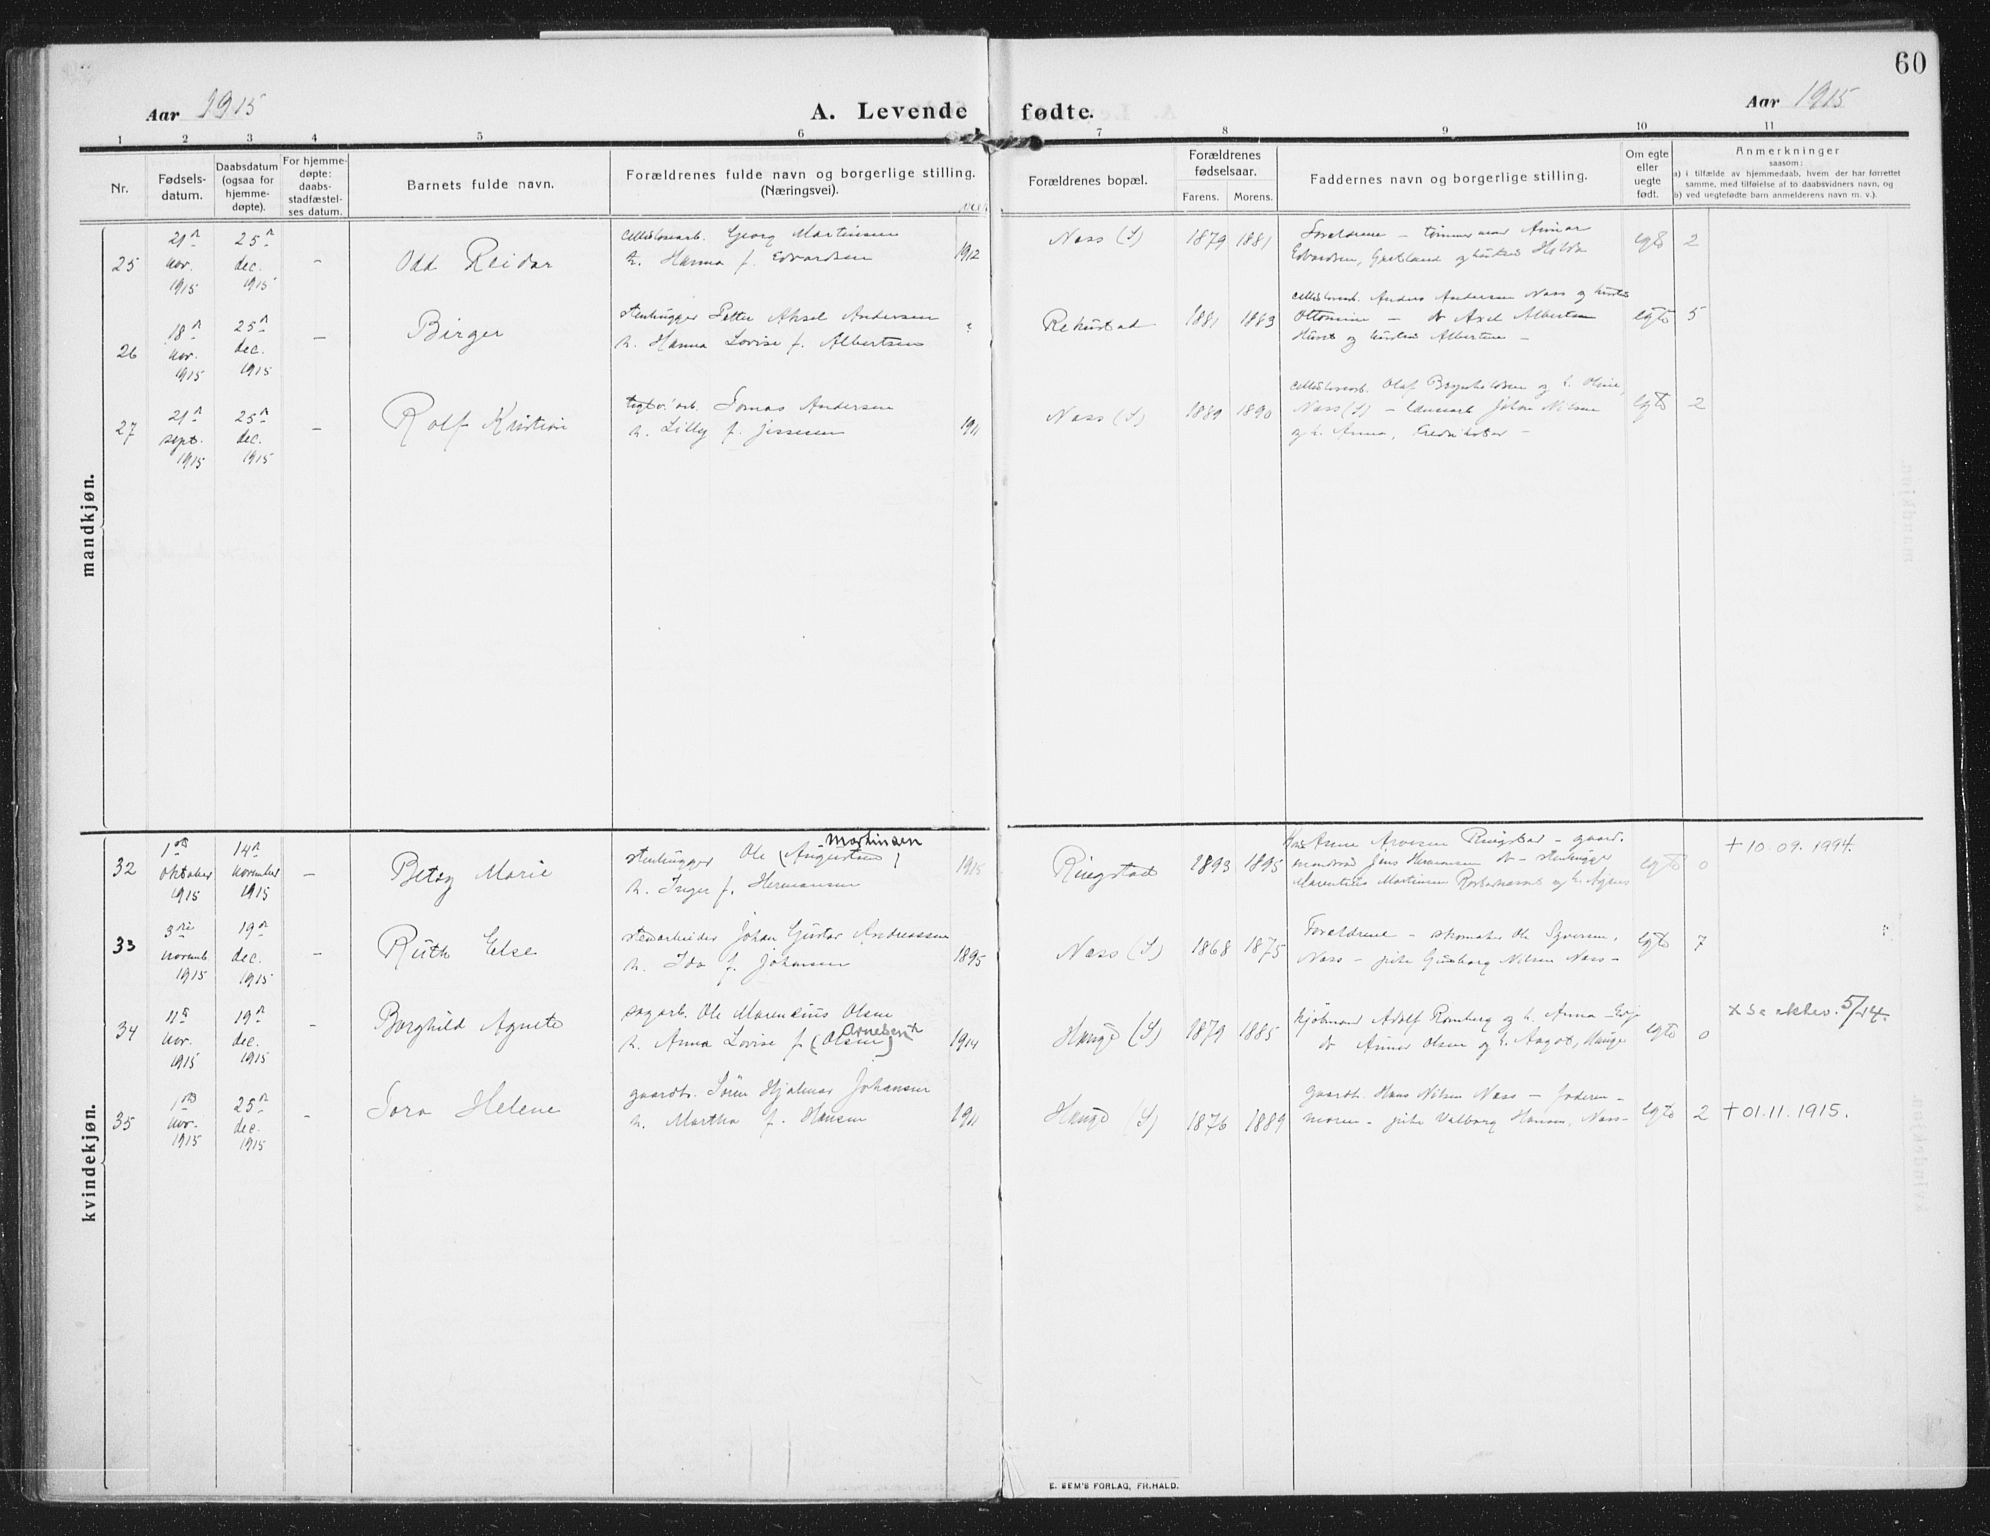 60
Aar 1915
A. Levende fødte.
Aar 1915
1 2 3 4 5 6 7 8 9 10 11
Nr.
Fødsels-
datum.
Daabsdatum
(ogsaa for
hjemme-
døpte).
For hjemme-
døpte:
daabs-
stadfæstel-
ses datum.
Barnets fulde navn.
Forældrenes fulde navn og borgerlige stilling.
(Næringsvei).
Forældrenes bopæl.
Forældrenes
fødselsaar.
Farens. Morens.
Faddernes navn og borgerlige stilling.
Om egte
eller
uegte
født.
Anmerkninger
saasom:
a) i tilfælde av hjemmedaab, hvem der har forrettet
samme, med tilføielse af to daabsvidners navn, og
b) ved uegtefødte barn anmelderens navn m. v.).
mandkjøn.
25
21 nov. 1915
25 dec. 1915
–
Odd Reidar
cellulosearb. Georg Martinsen
h. Hanna f. Edvardsen
1912
Næss (S) 1879 1881
Foreldrene – tømmermand
Edvardsen, og hustru Hilda
egte 2
26
18 nov. 1915
25 dec. 1915
–
Birger
stenhugger Petter Aksel Andersen
h. Hanna Lovise f. Albertsen
?
Rekustad 1881 1883
cellulosearb. Anders Andersen Næss og hustru
Ottomine – Axel Albertsen
og hustru Albertine –
egte 5
27
21 sept. 1915
25 dec. 1915
–
Rolf Kristian
arb. Tomas Andersen
h. Lilly f. Jessesen
1911
Næss (S) 1889 1890
cellulosearb. Olaf Brynhildsen og h. Oline,
Næss (S) – Johan Nilsen
og h. Anna, –
egte 2
kvindekjøn.
32
1 oktober 1915
14 november 1915
–
Betsy Marie
Martinsen
stenhugger Ole (Augustsen)
h. Inger f. Hermansen
1915
Ringstad 1893 1895
Anne Arvesen Ringstad – gaard-
mandssøn Jens Hermansen – stenhugger
Martinsen og h. Agnes
egte 0
+ 10.09.1994.
33
3 novemb 1915
19 dec. 1915
–
Ruth Else
stenarbeider Johan Gustav Andreassen
h. Ida f. Johansen
1895
Næss (S) 1868 1875
Foreldrene – skomaker Ole Syversen,
Næss – pike Gunborg Nilsen Næss –
egte 7
34
11 nov. 1915
19 dec. 1915
–
Borghild Agnete
sagarb. Ole Marensius Olsen
Arnebergh
h. Anna Lovise f. (Olsen)
1914
Haugø (S) 1879 1885
kjøbmand Adolf Romberg og h. Anna –
Olsen og h. Aagot, Hauge
egte 0
x Se ekstev. 5/14.
35
1 nov. 1915
25 dec. 1915
–
Tora Helene
gaardbr. Søren Hjalmar Johansen
h. Martha f. Hansen
1911
Haugø (S) 1876 1889
gaardbr. Hans Nilsen Næss – faderen –
moren – pike Valborg Hansen, Næss –
egte 2
+ 01.11.1915.
E. SEM'S FORLAG, FR.HALD.